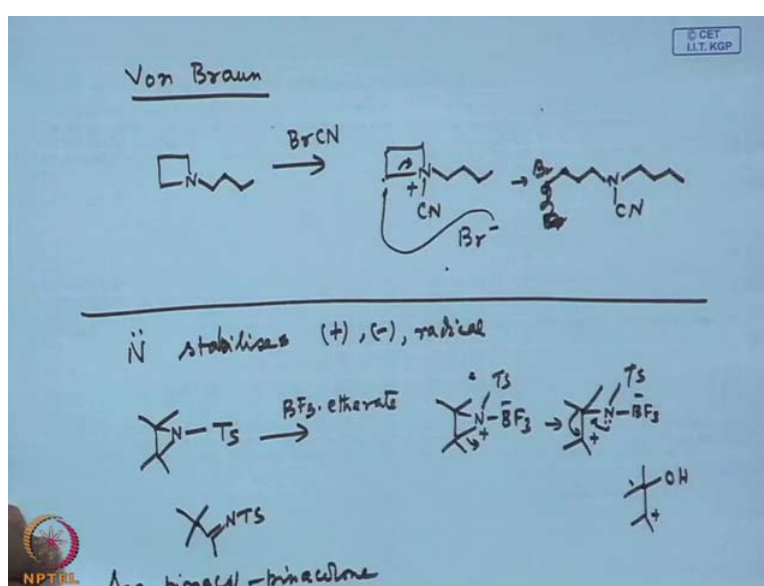 © CET
I.I.T. KGP
Von Braun
BrCN
N
N
+
CN
Br⁻
Br
N
CN
Br
N̈ stabilises (+), (-), radical
N-TS
BF₃.etherate
TS
N-BF₃
+
TS
N-BF₃
+
OH
+
NTS
pinacol-pinacolone
NPTEL